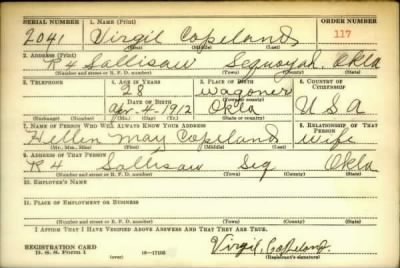 SERIAL NUMBER 1. NAME (Print) ORDER NUMBER
2041 Virgil Copeland 117
(First) (Middle) (Last)
2. ADDRESS (Print)
R 4 Sallisaw Sequoyah, Okla
(Number and street or R. F. D. number) (Town) (County) (State)
3. TELEPHONE 4. AGE IN YEARS 5. PLACE OF BIRTH 6. COUNTRY OF CITIZENSHIP
28 Wagoner
DATE OF BIRTH (Town or county)
Apr. 4 1912 Okla U S A
(Exchange) (Number) (Mo.) (Day) (Yr.) (State or country)
7. NAME OF PERSON WHO WILL ALWAYS KNOW YOUR ADDRESS 8. RELATIONSHIP OF THAT PERSON
Hellen May Copeland wife
(Mr., Mrs., Miss) (First) (Middle) (Last)
9. ADDRESS OF THAT PERSON
R 4 Sallisaw Seq Okla
(Number and street or R. F. D. number) (Town) (County) (State)
10. EMPLOYER'S NAME
11. PLACE OF EMPLOYMENT OR BUSINESS
(Number and street or R. F. D. number) (Town) (County) (State)
I AFFIRM THAT I HAVE VERIFIED ABOVE ANSWERS AND THAT THEY ARE TRUE.
REGISTRATION CARD
D. S. S. Form 1 (over) 16—17105 Virgil, Copeland.
(Registrant's signature)